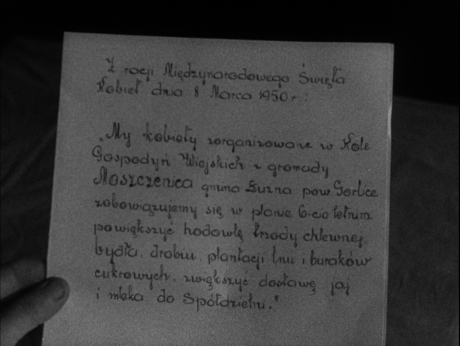 Z racji Międzynarodowego Święta
Kobiet dnia 8 Marca 1950 r:
„My kobiety zorganizowane w Kole
Gospodyń Wiejskich z gromady
Moszczenica gmina Łużna pow. Gorlice
zobowiązujemy się w planie 6-cio letnim
powiększyć hodowlę trzody chlewnej,
bydła, drobiu, plantacji lnu i buraków
cukrowych, zwiększyć dostawę jaj
i mleka do Spółdzielni."